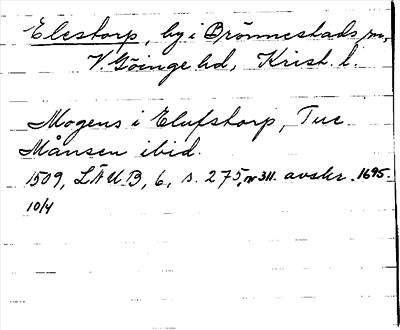 Elestorp, by i Brönnestads sn,
V. Göinge hd, Krist. l.
Mogens i Elufstorp, Tue
Månsen ibid.
1509, LÄUB, 6, s. 275, nr 311. avskr. 1695.
10/4